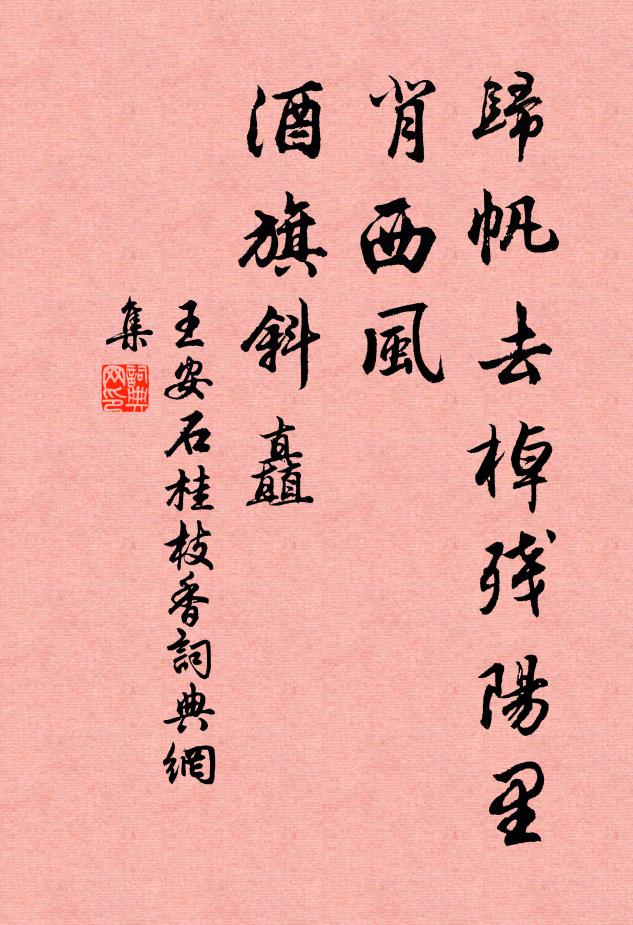 歸帆去棹残陽里
背西風
酒旗斜矗
王安石桂枝香詞典網
集
詞典
网印